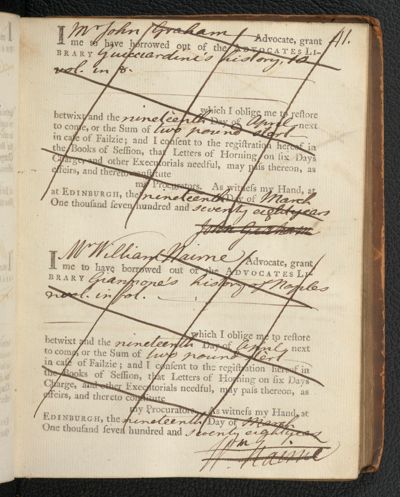 I Mr John Graham Advocate, grant 41.
me to have borrowed out of the ADVOCATES LI-
BRARY Guicciardine's history, 10
vol. in 8.
which I oblige me to restore
betwixt and the nineteenth Day of April next
to come, or the Sum of two pound sterl
in case of Failzie; and I consent to the registration hereof in
the Books of Session, that Letters of Horning on six Days
Charge, and other Executorials needful, may pass thereon, as
effeirs, and thereto constitute
my Procurators. As witness my Hand, at
at EDINBURGH, the nineteenth Day of March
One thousand seven hundred and seventy eight years
John Graham
I Mr William Nairne Advocate, grant
me to have borrowed out of the ADVOCATES LI-
BRARY Giannone's history of Naples
vol. in
which I oblige me to restore
betwixt and the nineteenth Day of April next
to come, or the Sum of two pound sterl
in case of Failzie; and I consent to the registration hereof in
the Books of Session, that Letters of Horning on six Days
Charge, and other Executorials needful, may pass thereon, as
effeirs, and thereto constitute
my Procurators. As witness my Hand, at
EDINBURGH, the nineteenth Day of March
One thousand seven hundred and seventy eight years
W. Nairne